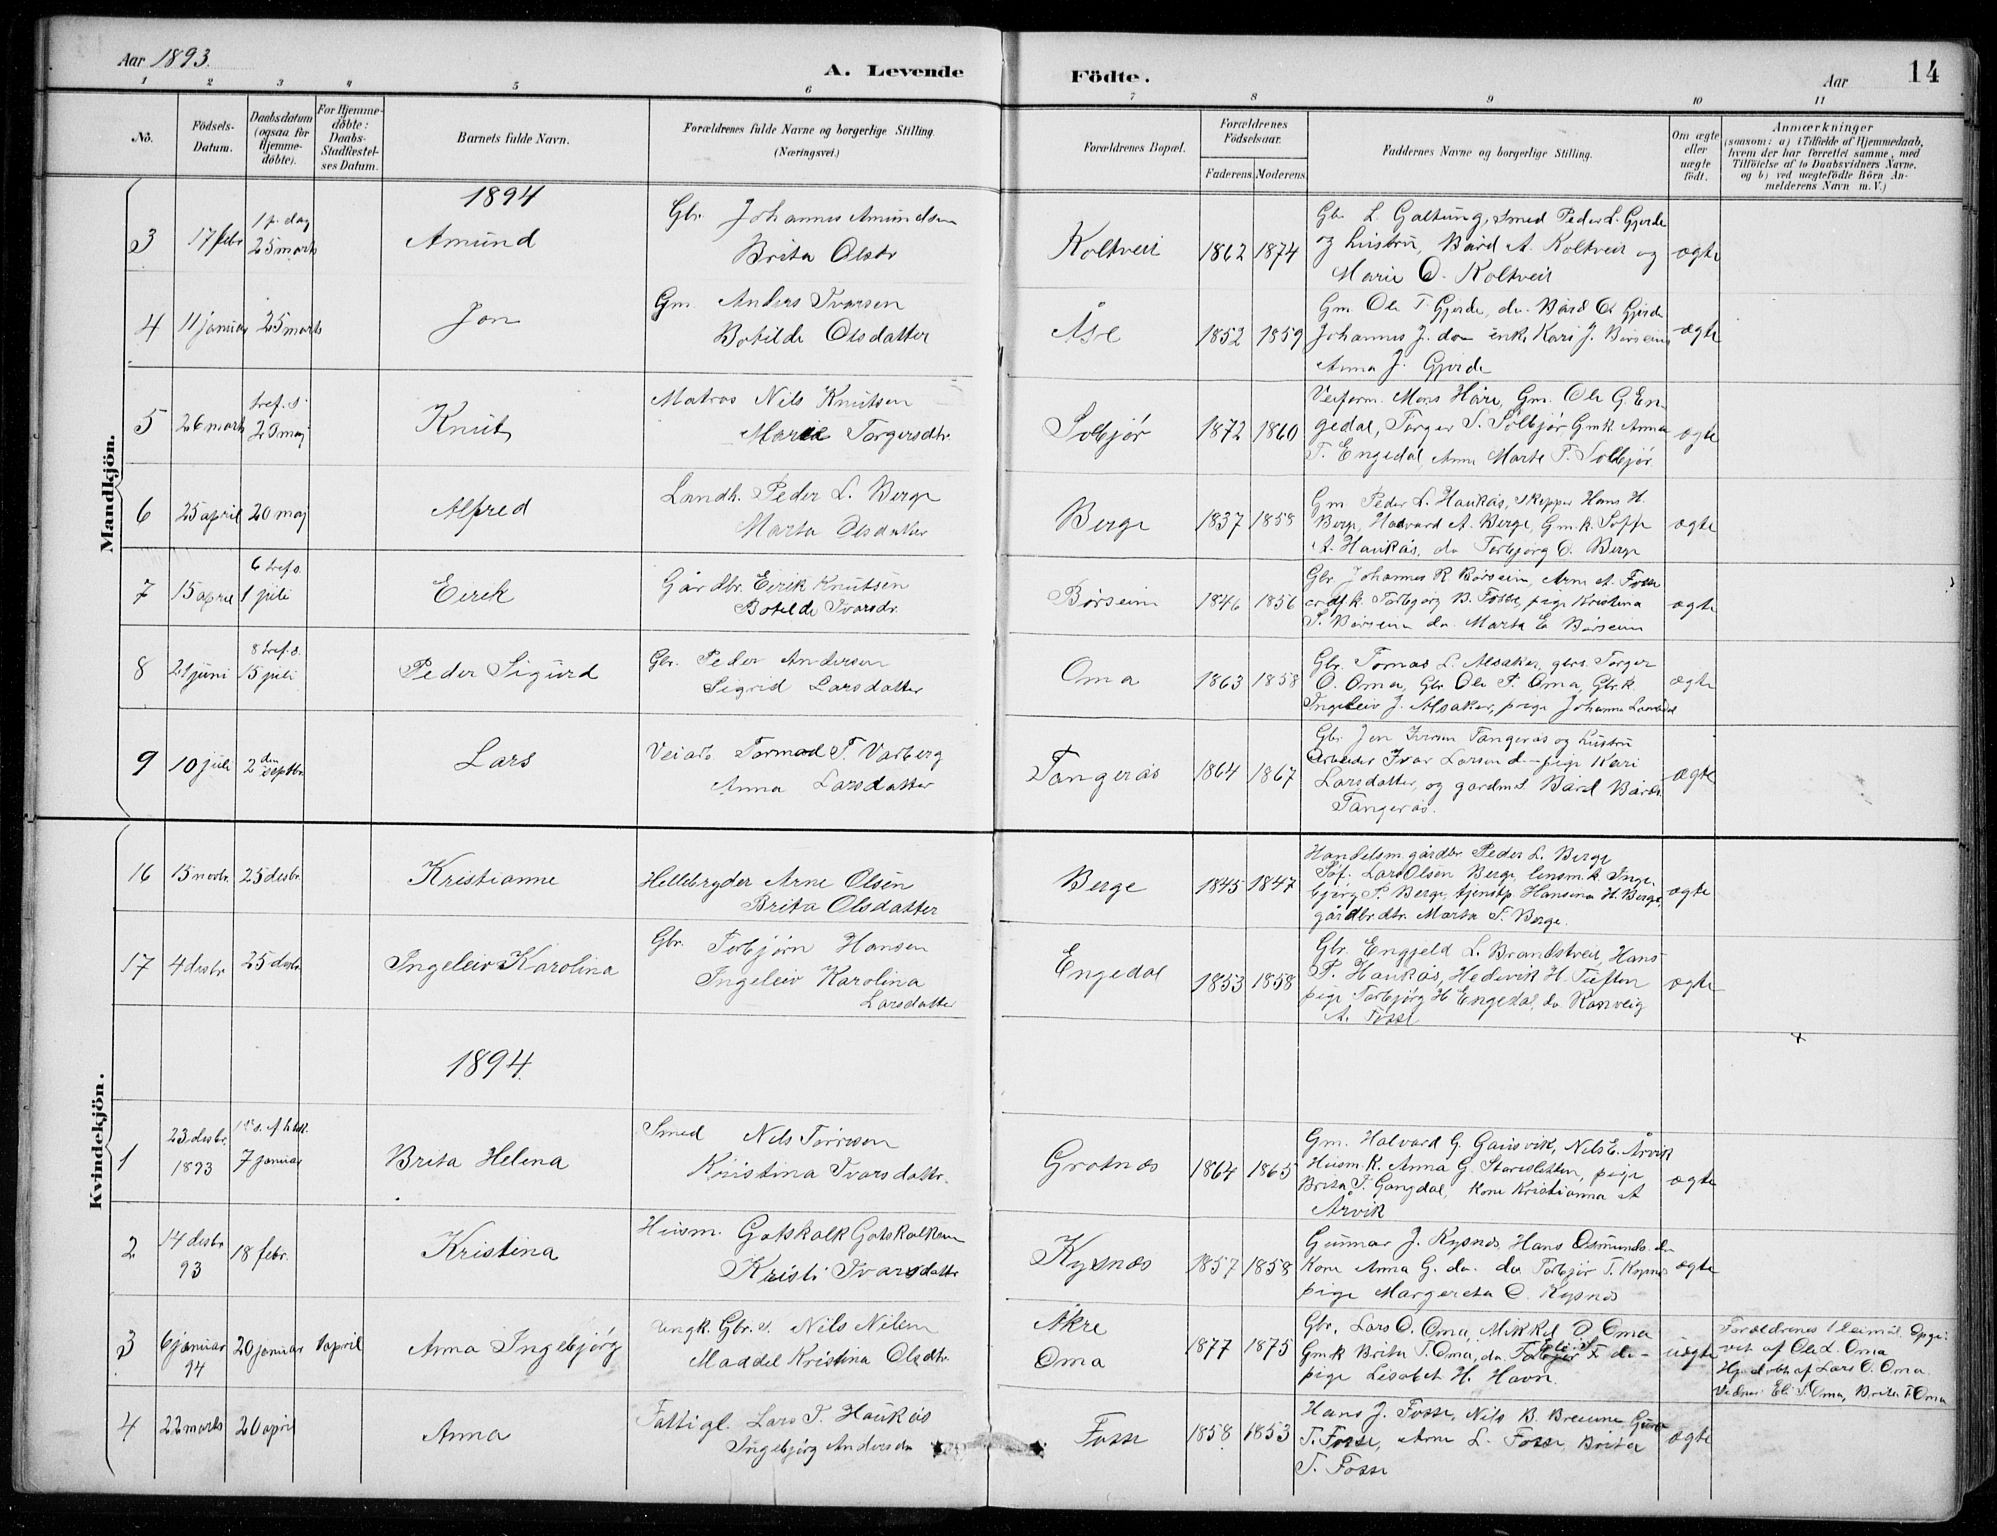 Aar 1893.
A. Levende Födte.
Aar
14
1 2 3 4 5 6 7 8 9 10 11
Nö.
Födsels-Datum.
Daabsdatum (ogsaa for Hjemme-döbte).
For Hjemme-döbte: Daabs-Stadfæstelses Datum.
Barnets fulde Navn.
Forældrenes fulde Navne og borgerlige Stilling. (Næringsvei.)
Forældrenes Bopæl.
Forældrenes Födselsaar.
Faderens. Moderens.
Faddernes Navne og borgerlige Stilling.
Om ægte eller uægte födt.
Anmærkninger
(saasom: a) i Tilfælde af Hjemmedaab, hvem der har forrettet samme, med Tilföielse af to Daabsvidners Navne, og b) ved uægtefödte Börn Anmelderens Navn m. V.)
Mandkjön.
1894
3 17 febr 1 p. dag 25 marts Amund
Gbr. Johannes Amundsen
Brita Olsdr
Koltveit 1862 1874
Gbr L. Galtung, Smed Peder L. Gjerde
og hustru, Bård A. Koltveit og
Marie O. Koltveit
ægte
4 11 januar 25 marts Jon
Gm. Anders Ivarsen
Botilde Olsdatter
Åse 1852 1859
Gm Ole T. Gjerde, do. Bård O Gjerde
Johannes J. do enk. Kari J. Børseim
Anna J. Gjerde
ægte
5 26 marts Knut
Matros Nils Knutsen
Marie Torgersdtr.
Solbjør 1872 1860
Veiform. Mons Håre, Gm. Ole G. En-
gedal, Torger S. Solbjør, Gmk. Anna
T. Engedal, Anna Marte T. Solbjør
ægte
6 25 april 20 maj Alfred
Landh. Peder L. Berge
Marta Olsdatter
Berge 1837 1858
Gm Peder L. Haukås, Skipper Hans H.
Berge, Hadvard A. Berge, Gmk. Soffe
A. Haukås, do Torbjørg O. Berge
ægte
7 15 april 6 tref.s. 1 juli Eirik
Gårdbr. Eirik Knutsen
Botilde Ivarsdr.
Børseim 1846 1856
Gbr. Johannes R. Børseim, Arne A. Fosse
k. Torbjørg B. Fosse, pige Kristina
S. Børseim do. Marta E. Børseim
ægte
8 21 juni 8 tref.s. 15 juli Peder Sigurd
Gbr. Peder Andersen
Sigrid Larsdatter
Oma 1863 1858
Gbr. Tomas L. Alsaker, gbrs. Torger
O. Oma, Gbr Ole P. Oma, Gbrk.
Ingeleiv J. Alsaker, pige Johanna
ægte
9 10 juli 2den septbr. Lars
Veiarb Tormod T. Varberg
Anna Larsdatter
Tangerås 1864 1867
Gbr. Jon Iversen Tangerås og hustru
Arbeider Ivar Larsen do - pige Kari
Larsdatter, og gardm s. Bård Bårds.
Tangerås.
ægte
Kvindekjön.
16 15 novbr. 25 desbr. Kristianne
Hellebryder Arne Olsen
Brita Olsdatter
Berge 1845 1847
Handelsm. gårdbr Peder L. Berge
Søf. Lars Olsen Berge, lensm. k. Inge-
bjørg P. Berge, tjenstp. Hansina H. Berge,
gårdbr.dtr. Marta S. Berge.
ægte
17 4 desbr. 25 desbr. Ingeleiv Karolina
Gbr. Torbjørn Hansen
Ingeleiv Karolina
Larsdatter
Engedal 1853 1858
Gbr. Engjeld L. Brandstveit, Hans
P. Haukås, Hedevik H. Tuften
pige Torbjørg H Engedal, do Rannveig
A. Fosse
ægte
1894.
1 23 desbr. 1893 7 januar Brita Helena
Smed Nils Tørresen
Kristina Ivarsdattr.
Grotnes 1864 1865
Gm. Halvard G. Gausvik, Nils E. Årvik
Husm. K. Anna G. Staresletten, pige
Brita T. Gangdal, Kone Kristianna A
Årvik
ægte
2 14 desbr 93 18 febr. Kristina
Husm. Gotskalk Gotskalksen
Kristi Ivarsdattr
Kysnes 1857 1858
Gunnar J. Kysnes Hans Osmunds. do
Kone Anna G. do. do Torbjør T. Kysnes
pige Margereta O. Kysnes
ægte
3 6 januar 94 20 januar 1 april Anna Ingebjørg
Ungk. Gbr. s. Nils Nilsen
Maddel Kristina Olsdtr.
Åkre
Oma
1877 1875
Gbr. Lars O. Oma, Mikkel O. Oma
Gmk Brita T. Oma, do.
pige Lisabet H. Havn.
uægte
Forældrenes 1 leiermål. Opgi-
vet af Ole L. Oma
Hj.døbt af Lars O. Oma.
Vidner: Eli S. Oma, Brita T. Oma
4 22 marts 20 april Anna
Fattigl. Lars T. Haukås
Ingebjørg Andersdr
Fosse 1858 1853
Hans J. Fosse, Nils B. Breiune
T. Fosse, Arne L. Fosse, Brita
T. Fosse
ægte